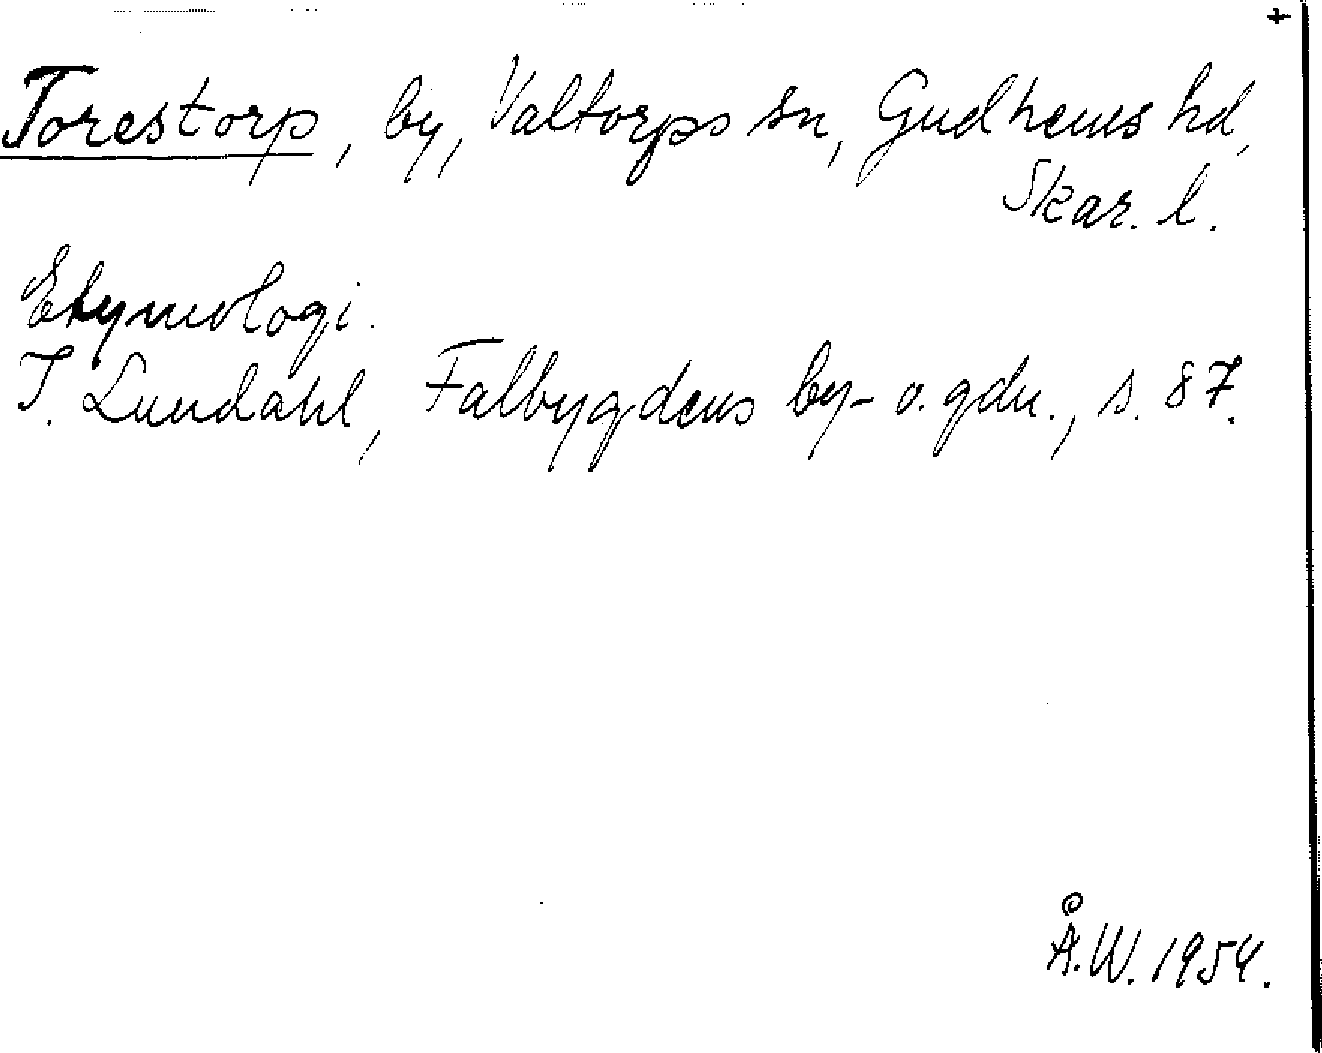 +
Torestorp, by, Valtorps sn, Gudhems hd,
Skar. l.
Etymologi.
I. Lundahl, Falbygdens by- o. gdn., s. 87.
Å.W. 1954.